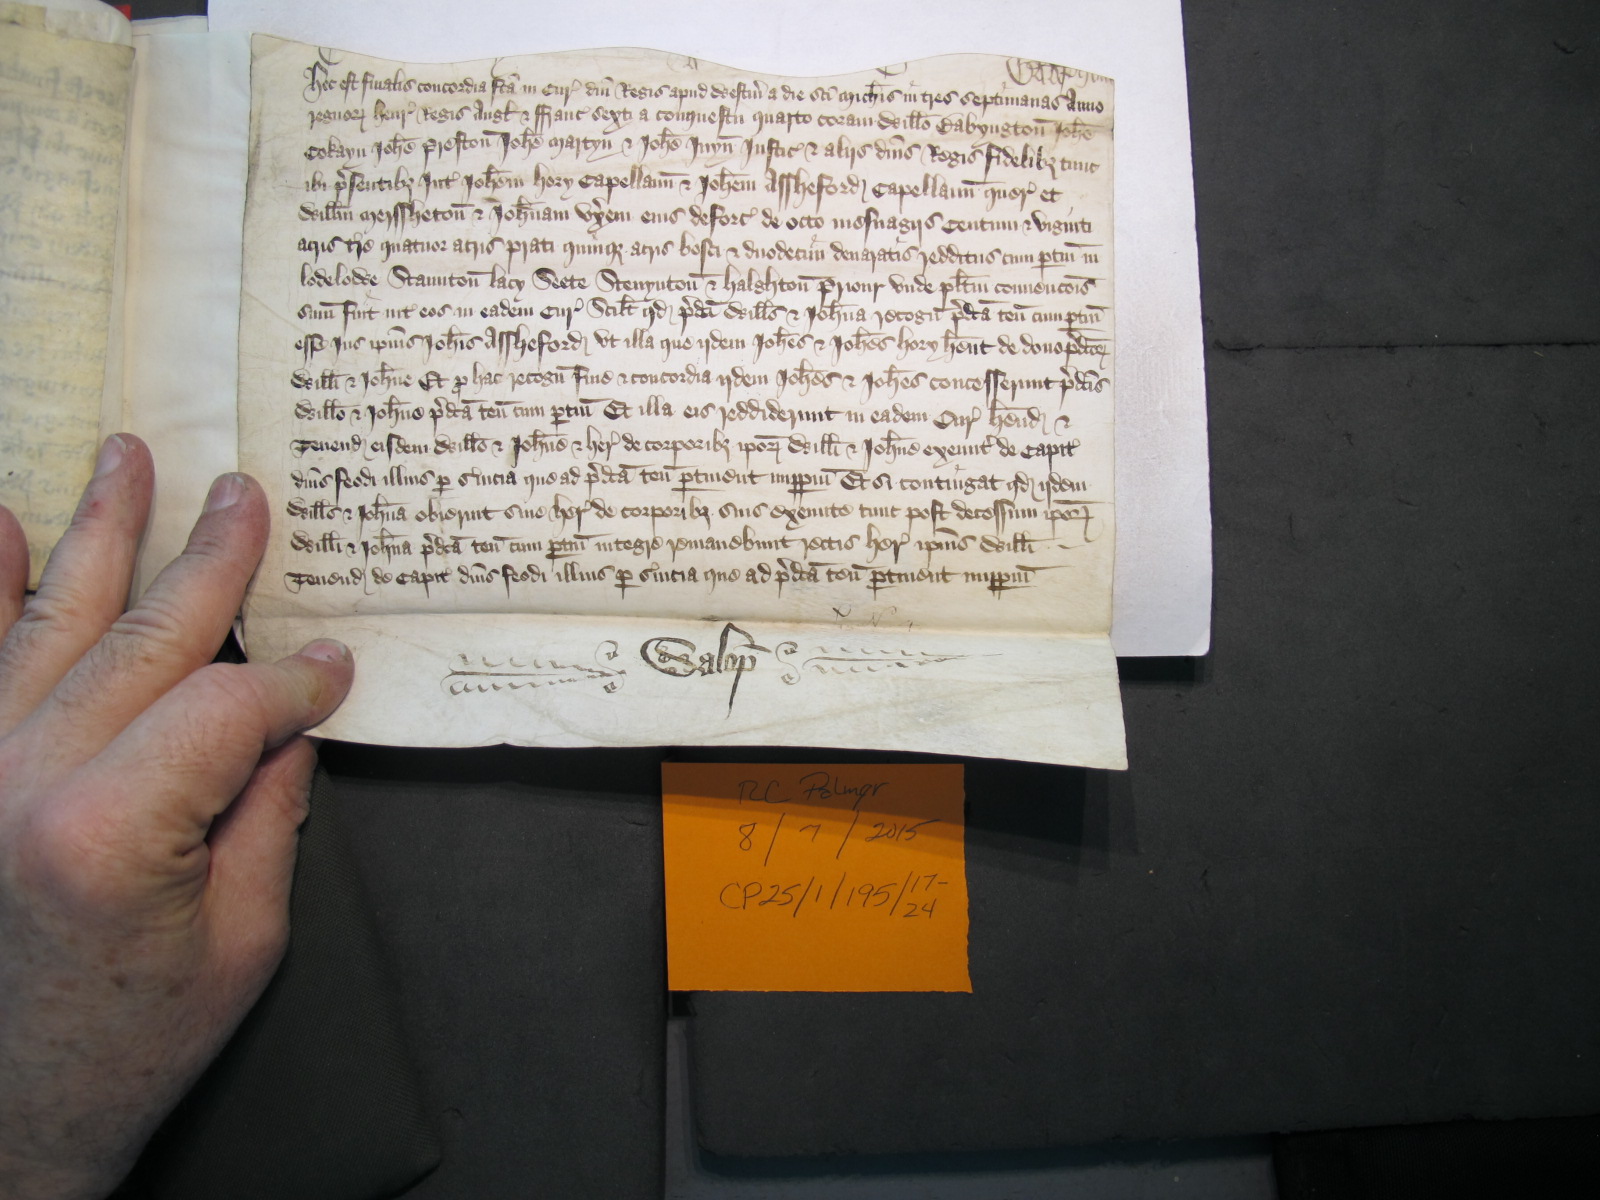 Hec est finalis concordia fc̄a in Cur̄ dn̄i Regis apud Westm̄ a die Sc̄i Mich̄is in tres septimanas Anno
regnor̄ Henr̄ Regis Angl̄ & Ffranc̄ sexti a conquestu quarto coram Will̄o Babyngton̄ Joh̄e
Cokayn Joh̄e Preston̄ Joh̄e Martyn̄ & Joh̄e Juyn̄ Justic̄ & aliis dn̄i Regis fidelibȝ tunc
ibi p̄sentibȝ Int̄ Joh̄em Hory Capellanū & Joh̄em Assheford Capellanū quer̄ et
Will̄m Merssheton̄ & Joh̄nam vx̄em eius deforc̄ de octo mesuagiis Centum & viginti
acris tr̄e quatuor acris prati quinqȝ acris bosci & duodecim denaratis redditus cum ptin̄ in
lodelowe Staunton̄ lacy Seete Stenynton̄ & Halghton̄ Priour vnde pl̄itm conuencōis
sum̄ fuit int̄ eos in eadem Cur̄ Scil̄t qd p̄dc̄i Will̄s & Joh̄na recogn̄ p̄dc̄a ten̄ cum ptin̄
esse Jus ipīus Joh̄is Assheford vt illa que iidem Joh̄es & Joh̄es Hory hēnt de dono p̄dc̄or̄
Will̄i & Joh̄ne Et p hac recogn̄ fine & concordia iidem Joh̄es & Joh̄es concesserunt p̄dc̄is
Will̄o & Joh̄ne p̄dc̄a ten̄ cum ptin̄ Et illa eis reddiderunt in eadem Cur̄ Hēnd &
Tenend eisdem Will̄o & Joh̄ne & her̄ de corporibȝ ipor̄ Will̄i & Joh̄ne exeunt̄ de Capit̄
dn̄is feodi illius p s̄uicia que ad p̄dc̄a ten̄ ptinent imppm̄ Et si contingat qd iidem
Will̄s & Joh̄na obierint sine her̄ de corporibȝ suis exeunte tunc post decessum ipor̄
Will̄i & Joh̄na p̄dc̄a ten̄ cum ptin̄ integre remanebunt rectis her̄ ipīus Will̄i
Tenend de Capit̄ dn̄is feodi illius p s̄uicia que ad p̄dc̄a ten̄ ptinent imppm̄
Salop̄
RC Palmer
8/7/2015
CP25/1/195/17-
24